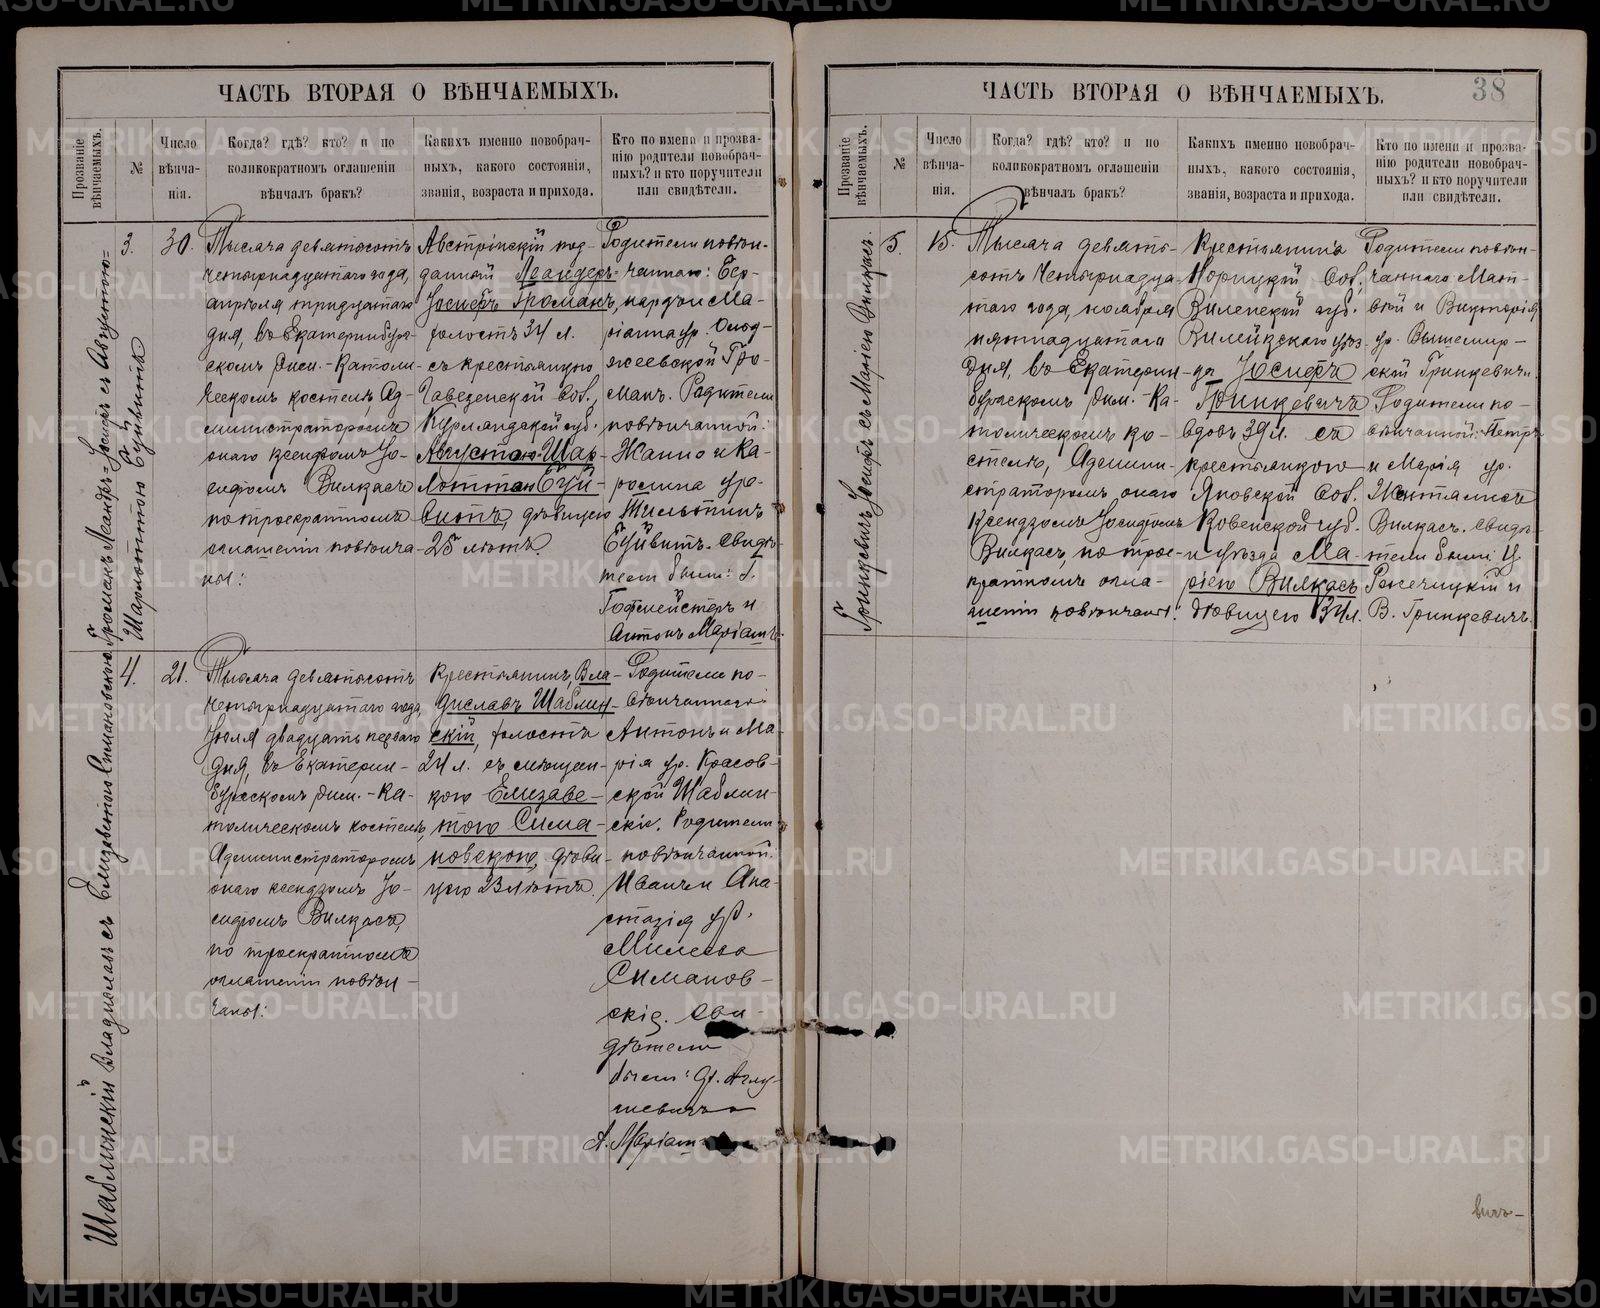 ЧАСТЬ ВТОРАЯ О ВѢНЧАЕМЫХЪ.
Прозваніе
вѣнчаемыхъ.
№
Число
вѣнча-
нія.
Когда? гдѣ? кто? и по
коликократномъ оглашеніи
вѣнчалъ бракъ?
Какихъ именно новобрач-
ныхъ, какого состоянія,
званія, возраста и прихода.
Кто по имени и прозва-
нію родители новобрач-
ныхъ? и кто поручители
или свидѣтели.
Громанъ Леандръ-Іосифъ съ Августою-
Шарлоттою Буйвитъ
3.
30.
Тысяча девятьсотъ
четырнадцатаго года,
апрѣля тридцатаго
дня, въ Екатеринбур-
скомъ Рим.-Католи-
ческомъ костелѣ, Ад-
министраторомъ
онаго ксендзомъ Іо-
сифомъ Вилкасъ
по троекратномъ
оглашеніи повѣнча-
ны:
Австрійскій под-
данный Леандеръ-
Іосифъ Громанъ,
холостъ 34 л.
съ крестьянкою
Курляндской губ.
Августою-Шар-
лоттою Буй-
витъ, дѣвицею
25 лѣтъ.
Родители повѣн-
чаннаго:
Ма-
Гро-
манъ. Родители
повѣнчанной:
и Ка-
ролина ур.
Буйвитъ. Свидѣ-
тели были: Г.
Гофмейстеръ и
Антонъ Маріамъ.
Шаблинскій Владиславъ съ Елизаветою Симановскою
4.
21.
Тысяча девятьсотъ
четырнадцатаго года,
Іюля двадцать перваго
дня, въ Екатерин-
бурскомъ Рим.-Ка-
толическомъ костелѣ,
Администраторомъ
онаго ксендзомъ Іо-
сифомъ Вилкасъ,
по троекратномъ
оглашеніи повѣн-
чаны:
Крестьянинъ, Вла-
диславъ Шаблин-
скій, холостъ
24 л. съ мѣщан-
кою Елизаве-
тою Сима-
новскою, дѣви-
цею 23 лѣтъ.
Родители по-
вѣнчаннаго:
Антонъ и Ма-
рія ур. Красов-
ской Шаблин-
скіе. Родители
повѣнчанной:
Иванъ и Ана-
стазія ур.
Симанов-
скіе. Сви-
дѣтели
были:
А. Маріамъ
ЧАСТЬ ВТОРАЯ О ВѢНЧАЕМЫХЪ.
38
Прозваніе
вѣнчаемыхъ.
№
Число
вѣнча-
нія.
Когда? гдѣ? кто? и по
коликократномъ оглашеніи
вѣнчалъ бракъ?
Какихъ именно новобрач-
ныхъ, какого состоянія,
званія, возраста и прихода.
Кто по имени и прозва-
нію родители новобрач-
ныхъ? и кто поручители
или свидѣтели.
Гринкевичъ Іосифъ съ Маріею Вилкасъ.
5.
15.
Тысяча девять-
сотъ четырнадца-
таго года, ноября
пятнадцатаго
дня, въ Екатерин-
бурскомъ Рим.-Ка-
толическомъ ко-
стелѣ, Админи-
страторомъ онаго
Ксендзомъ Іосифомъ
Вилкасъ, по трое-
кратномъ огла-
шеніи повѣнчаны:
Крестьянинъ
Норицкой вол.,
Виленской губ.
Вилейскаго уѣз-
да Іосифъ
Гринкевичъ
вдовъ 39 л. съ
крестьянкою
Яновской вол.
Ковенской губ.
и уѣзда Ма-
ріею Вилкасъ
дѣвицею 34 л.
Родители повѣн-
чаннаго Мат-
вѣй и Викторія
ур. Вышемир-
ской Гринкевичи.
Родители по-
вѣнчанной: Петръ
и Марія ур.
Вилкасъ. Свидѣ-
тели были:
и
В. Гринкевичъ.
METRIKI.GASO-URAL.RU